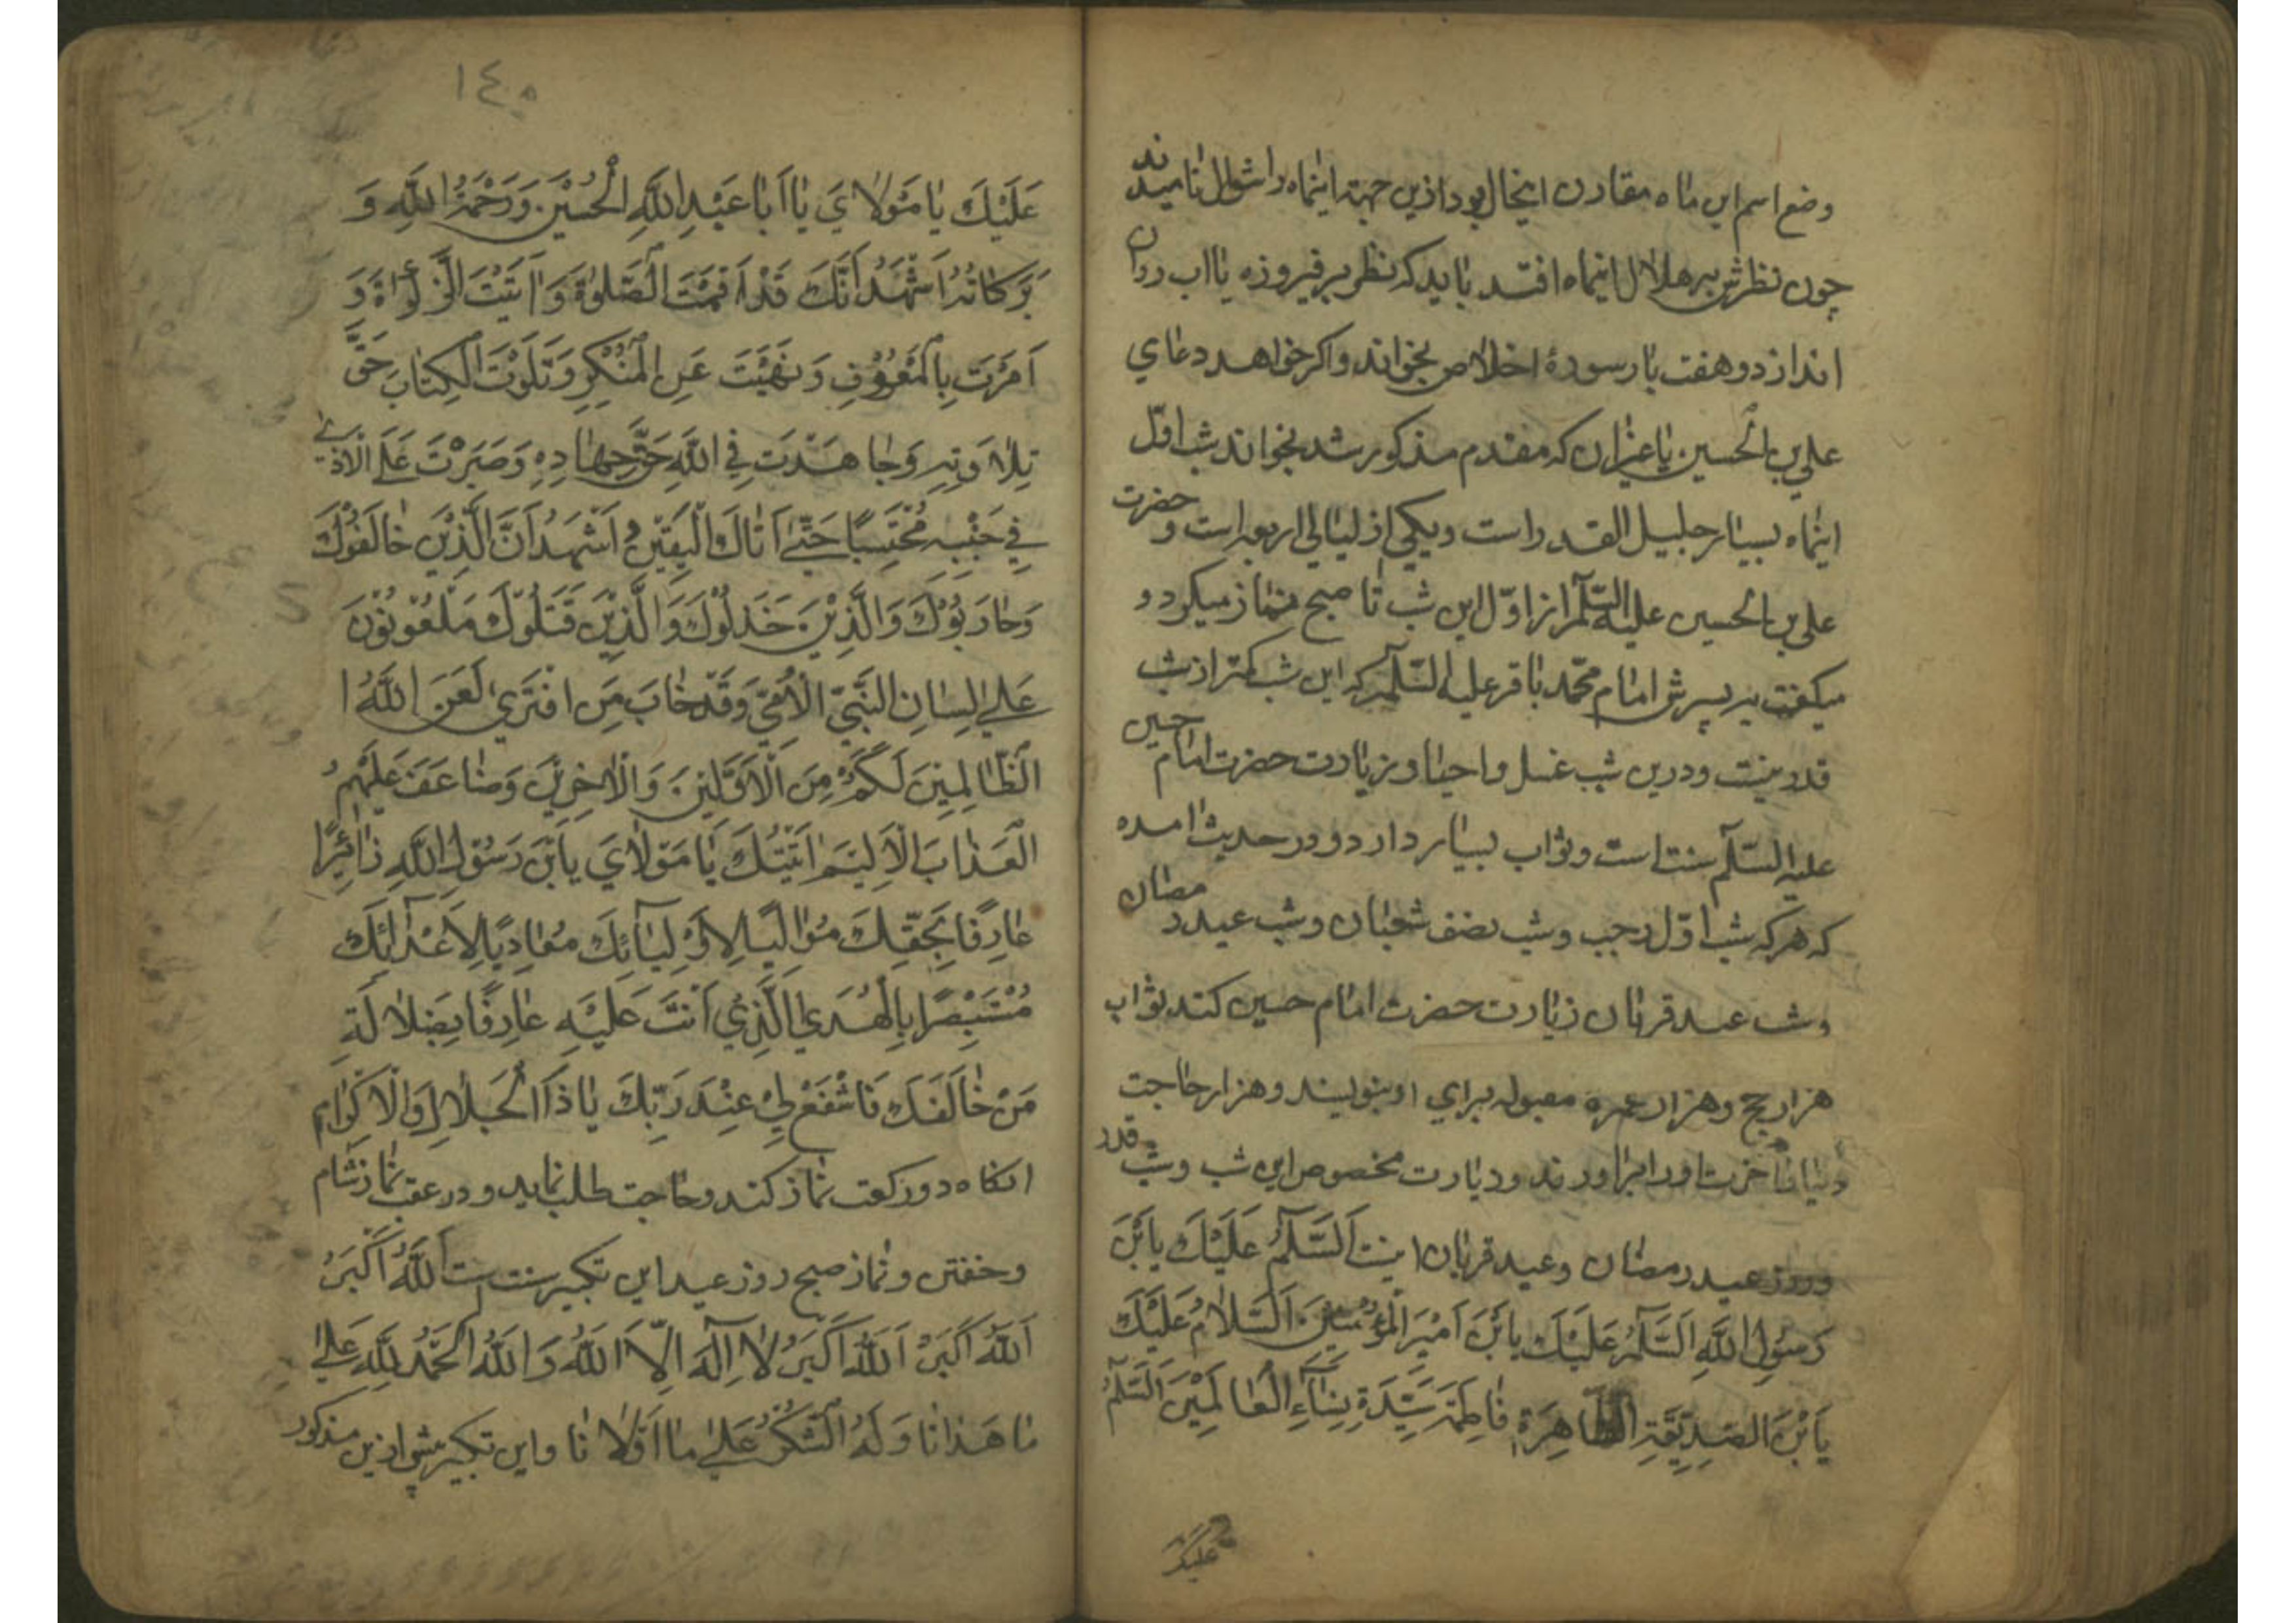 وضع اسم این ماه مقارن اینحال بود ازین جهة اینماه را شوال نامیدند
چون نظرش بر هلال اینماه افتد باید که نظر بر فیروزه یا اب روان
اندازد و هفت بار سورهٔ اخلاص بخواند و اکر خواهد دعاي
علي بن الحسین یا غیران که مقدم مذکور شد بخواند شب اوّل
اینماه بسیار جلیل القدر است و یکي از لیالي اربعه است و حضرت
علي بن الحسین علیه السّلم از اوّل این شب تا صبح نماز میکرد و
میکفت بر پسرش امام محمّد باقر علیه السّلم که این شب کمتر از شب
قدر نیست و درین شب غسل و احیا و زیارت حضرت امام حسین
علیه السّلم سنت است و ثواب بسیار دارد و در حدیث امده
که هر که شب اوّل رجب و شب نصف شعبان و شب عید رمضان
و شب عید قربان زیارت حضرت امام حسین کند ثواب
هزار حج و هزار عمره مقبوله براي او بنویسند و هزار حاجت
دنیا و اخرت او را براورند و زیارت مخصوص این شب و شب قدر
و روز عید رمضان و عید قربان اینست اَلسَّلٰمُ عَلَیْكَ یابْنَ
رَسُولِ اللّٰهِ اَلسَّلٰمُ عَلَیْكَ یابْنَ اَمیْرَ الْمُؤْمنیْنَ اَلسَّلامُ عَلَیْكَ
یَابْنَ الصّدِیقَةِ الطّاهِرَةِ فاطِمَةَ سَیِّدَةِ نِسٰآءِ الْعٰالَمیْنَ اَلسَّلٰمُ
علیك
١٤٥
عَلَیْكَ یٰا مَوْلاٰيَ یٰا اَبٰا عَبْدِ اللّٰهِ الْحُسَیْنَ وَرَحْمَةُ اللّٰهِ وَ
بَرَكاتُهُ اَشْهَدُ اَنَّكَ قَدْ اَقَمْتَ الصَّلوٰةَ وَاٰتَیْتَ الزَّكوٰةَ وَ
اَمَرْتَ بِالْمَعْرُوْفِ وَنَهَیْتَ عَنِ الْمُنْكَرِ وَتَلَوْتَ الْكِتٰابَ حَقَّ
تِلاٰوَتِهِ وَجٰاهَدْتَ فِي اللّٰهِ حَقَّ جِهٰادِهِ وَصَبَرْتَ عَلَي الْاَذٰي
فِي جَنْبِهِ مُحْتَسِبًا حَتّٰي اَتٰاكَ الْیَقیْن اَشْهَدُ اَنَّ الَّذِیْنَ خٰالَفُوْكَ
وَحٰارَبُوْكَ وَالَّذِیْنَ خَذَلُوْكَ وَالَّذِیْنَ قَتَلُوْكَ مَلْعُوْنُوْنَ
عَلٰي لِسٰانِ النَّبِيّ الْاُمّيّ وَقَدْ خٰابَ مَنِ افْتَرَي لَعَنَ اللّٰهُ ا
الظّٰالِمِیْنَ لَكُمْ مِنَ الْاَوَّلیْنَ وَالْاٰخِرِیْنَ وَضٰاعَفَ عَلَیْهِمُ
الْعَذٰابَ الْاَلِیْمَ اَتَیْتُكَ یٰا مَوْلاٰيَ یابْنَ رَسُوْلِ اللّٰهِ زٰائِرًا
عٰارِفًا بِحَقِّكَ مُوٰالِیًا لِاَوْلِیٰآئِكَ مُعٰادِیًا لِاَعْدٰآئِكَ
مُسْتَبْصِرًا بِالْهُدَي الَّذِي اَنْتَ عَلَیْهِ عٰارِفًا بِضَلاٰلَةِ
مَنْ خٰالَفَكَ فَاشْفَعْ لِيْ عِنْدَ رَبِّكَ یٰا ذَا الْجَلاٰلِ وَالْاِكْرٰامِ
انکاه دو رکعت نماز کند و حاجت طلب نماید و در عقب نماز شام
و خفتن و نماز صبح روز عید این تکبیر سنت است اَللّٰهُ اَكْبَرُ
اَللّٰهُ اَكْبَرُ اَللّٰهُ اَكْبَرُ لاٰ اِلٰهَ اِلّاَ اللّٰهُ وَاللّٰهُ اَلْحَمْدُ لِلّٰهِ عَلٰي
مٰا هَدٰانٰا وَلَهُ الشُّكْرُ عَلٰي مٰا اَوْلاٰنٰا و این تکبیر پیش ازین مذکور